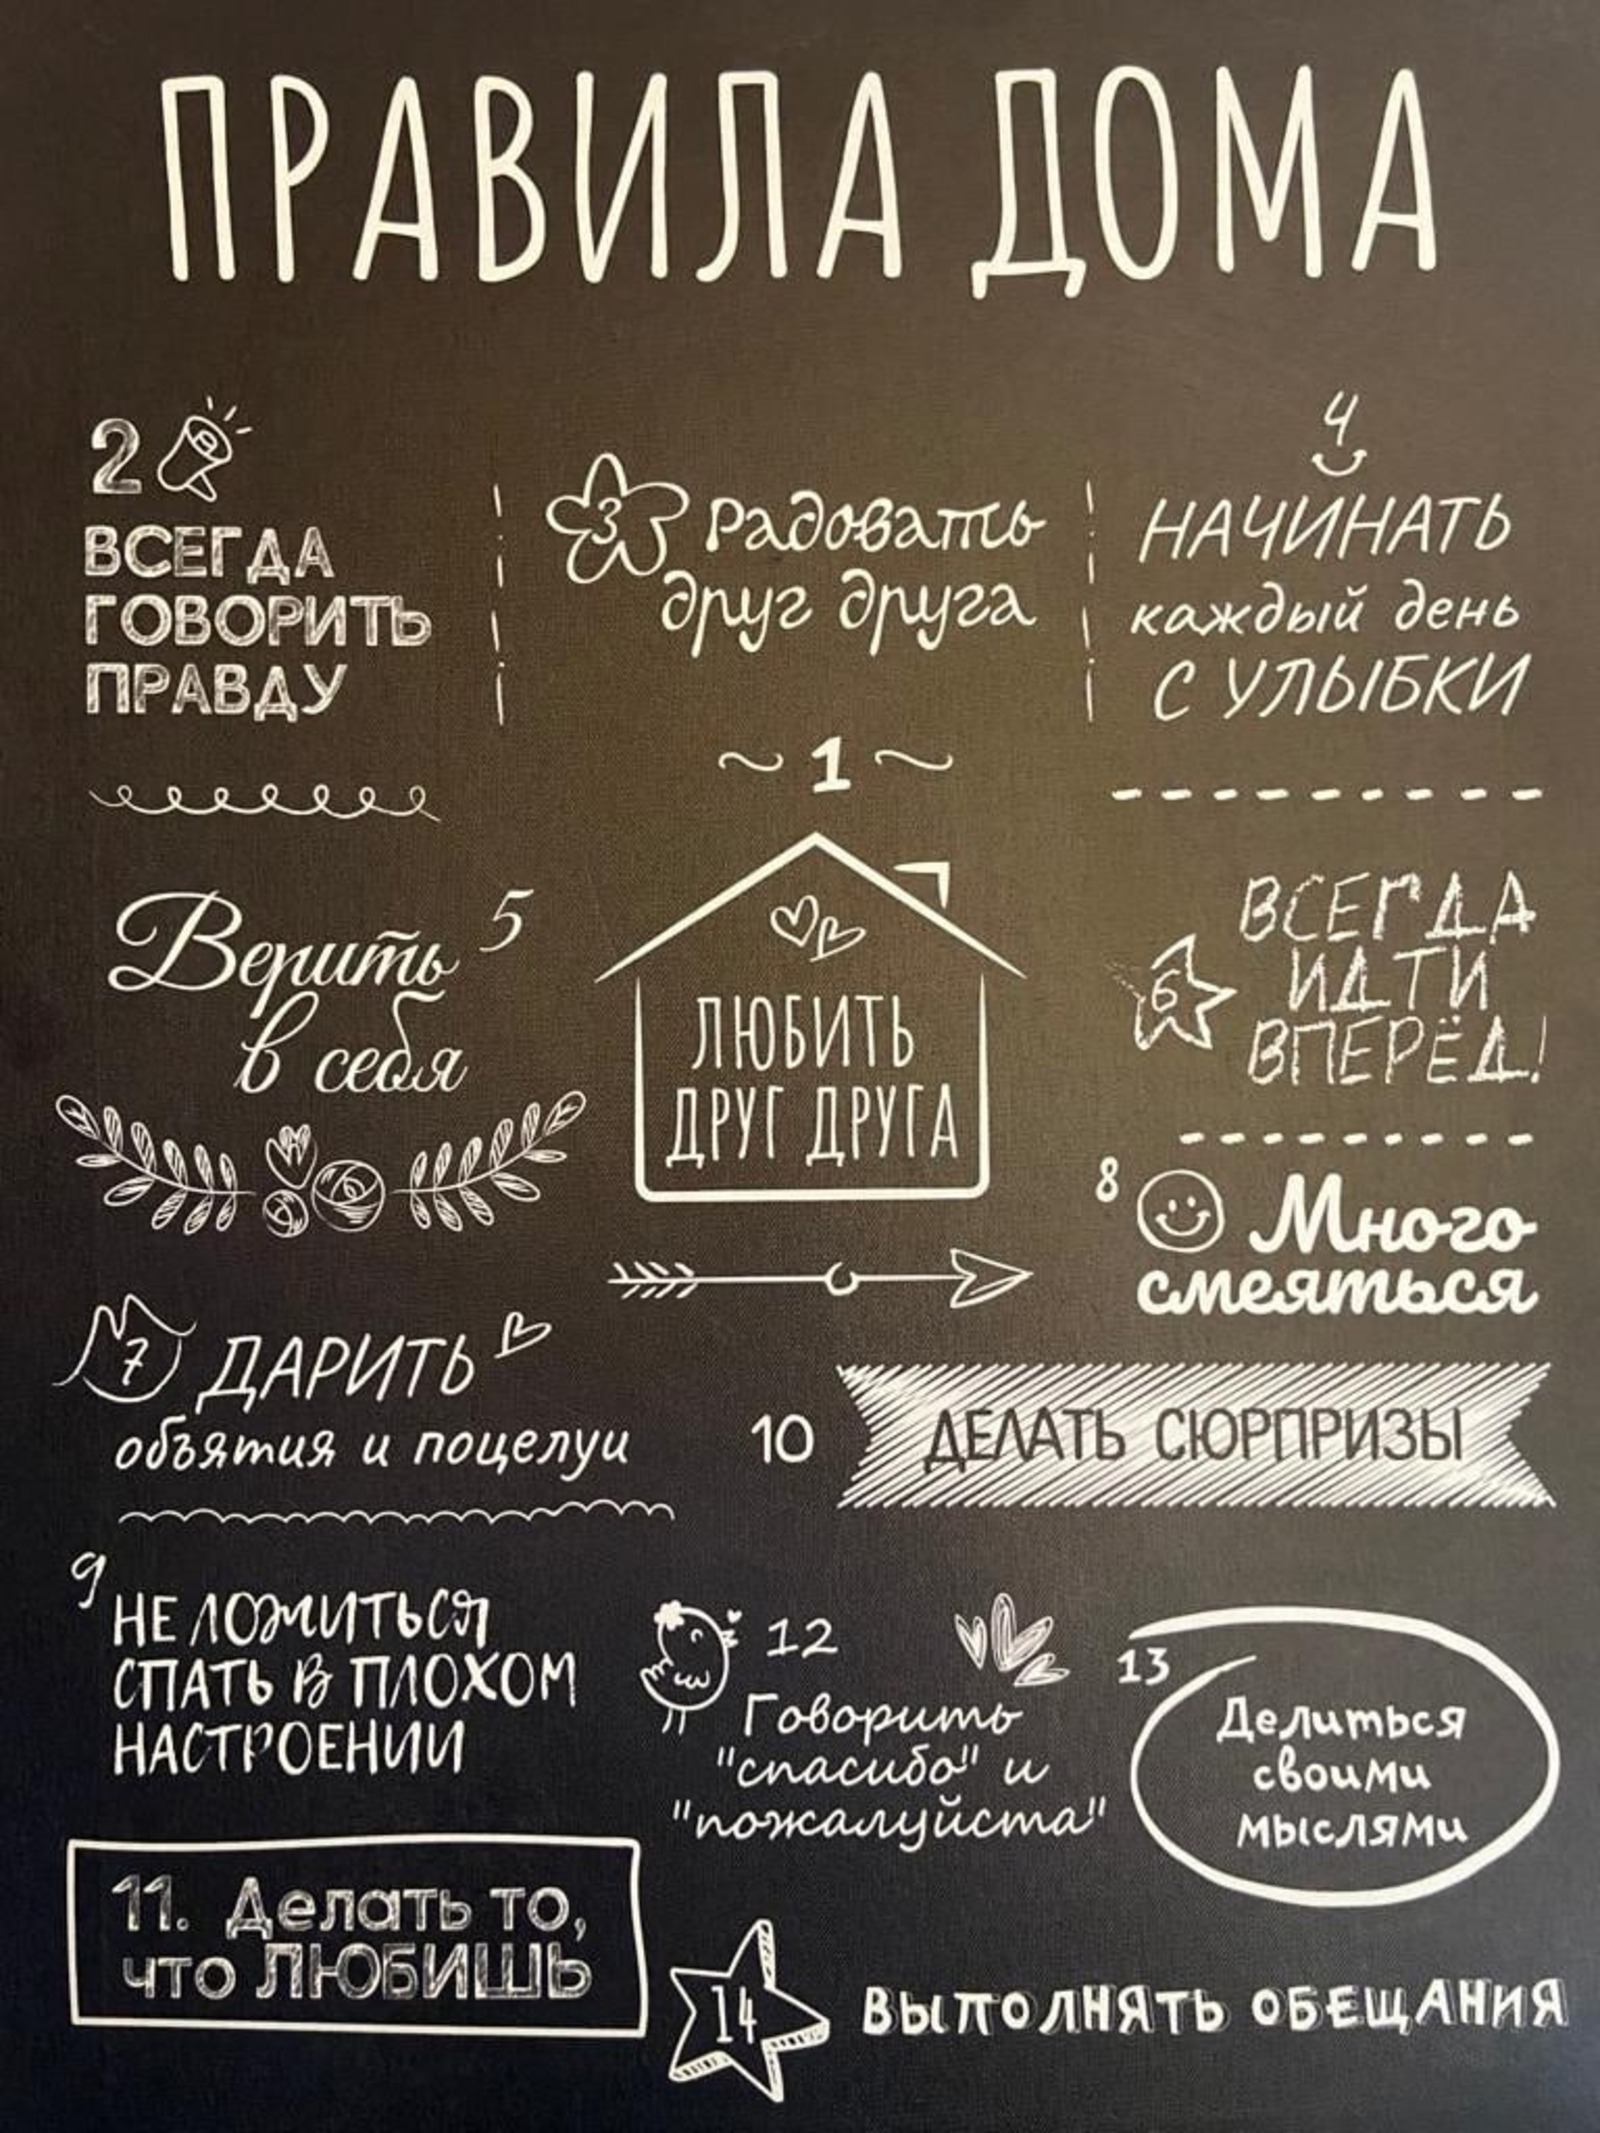 ПРАВИЛА ДОМА
2
ВСЕГДА
ГОВОРИТЬ
ПРАВДУ
3
Радовать
друг друга
4
НАЧИНАТЬ
каждый день
С УЛЫБКИ
1
ЛЮБИТЬ
ДРУГ ДРУГА
5
Верить
в себя
6
ВСЕГДА
ИДТИ
ВПЕРЁД!
7
ДАРИТЬ
объятия и поцелуи
8
Много
смеяться
9
НЕ ЛОЖИТЬСЯ
СПАТЬ В ПЛОХОМ
НАСТРОЕНИИ
10
ДЕЛАТЬ СЮРПРИЗЫ
11. Делать то,
что ЛЮБИШЬ
12
Говорить
"спасибо" и
"пожалуйста"
13
Делиться
своими
мыслями
14
ВЫПОЛНЯТЬ ОБЕЩАНИЯ